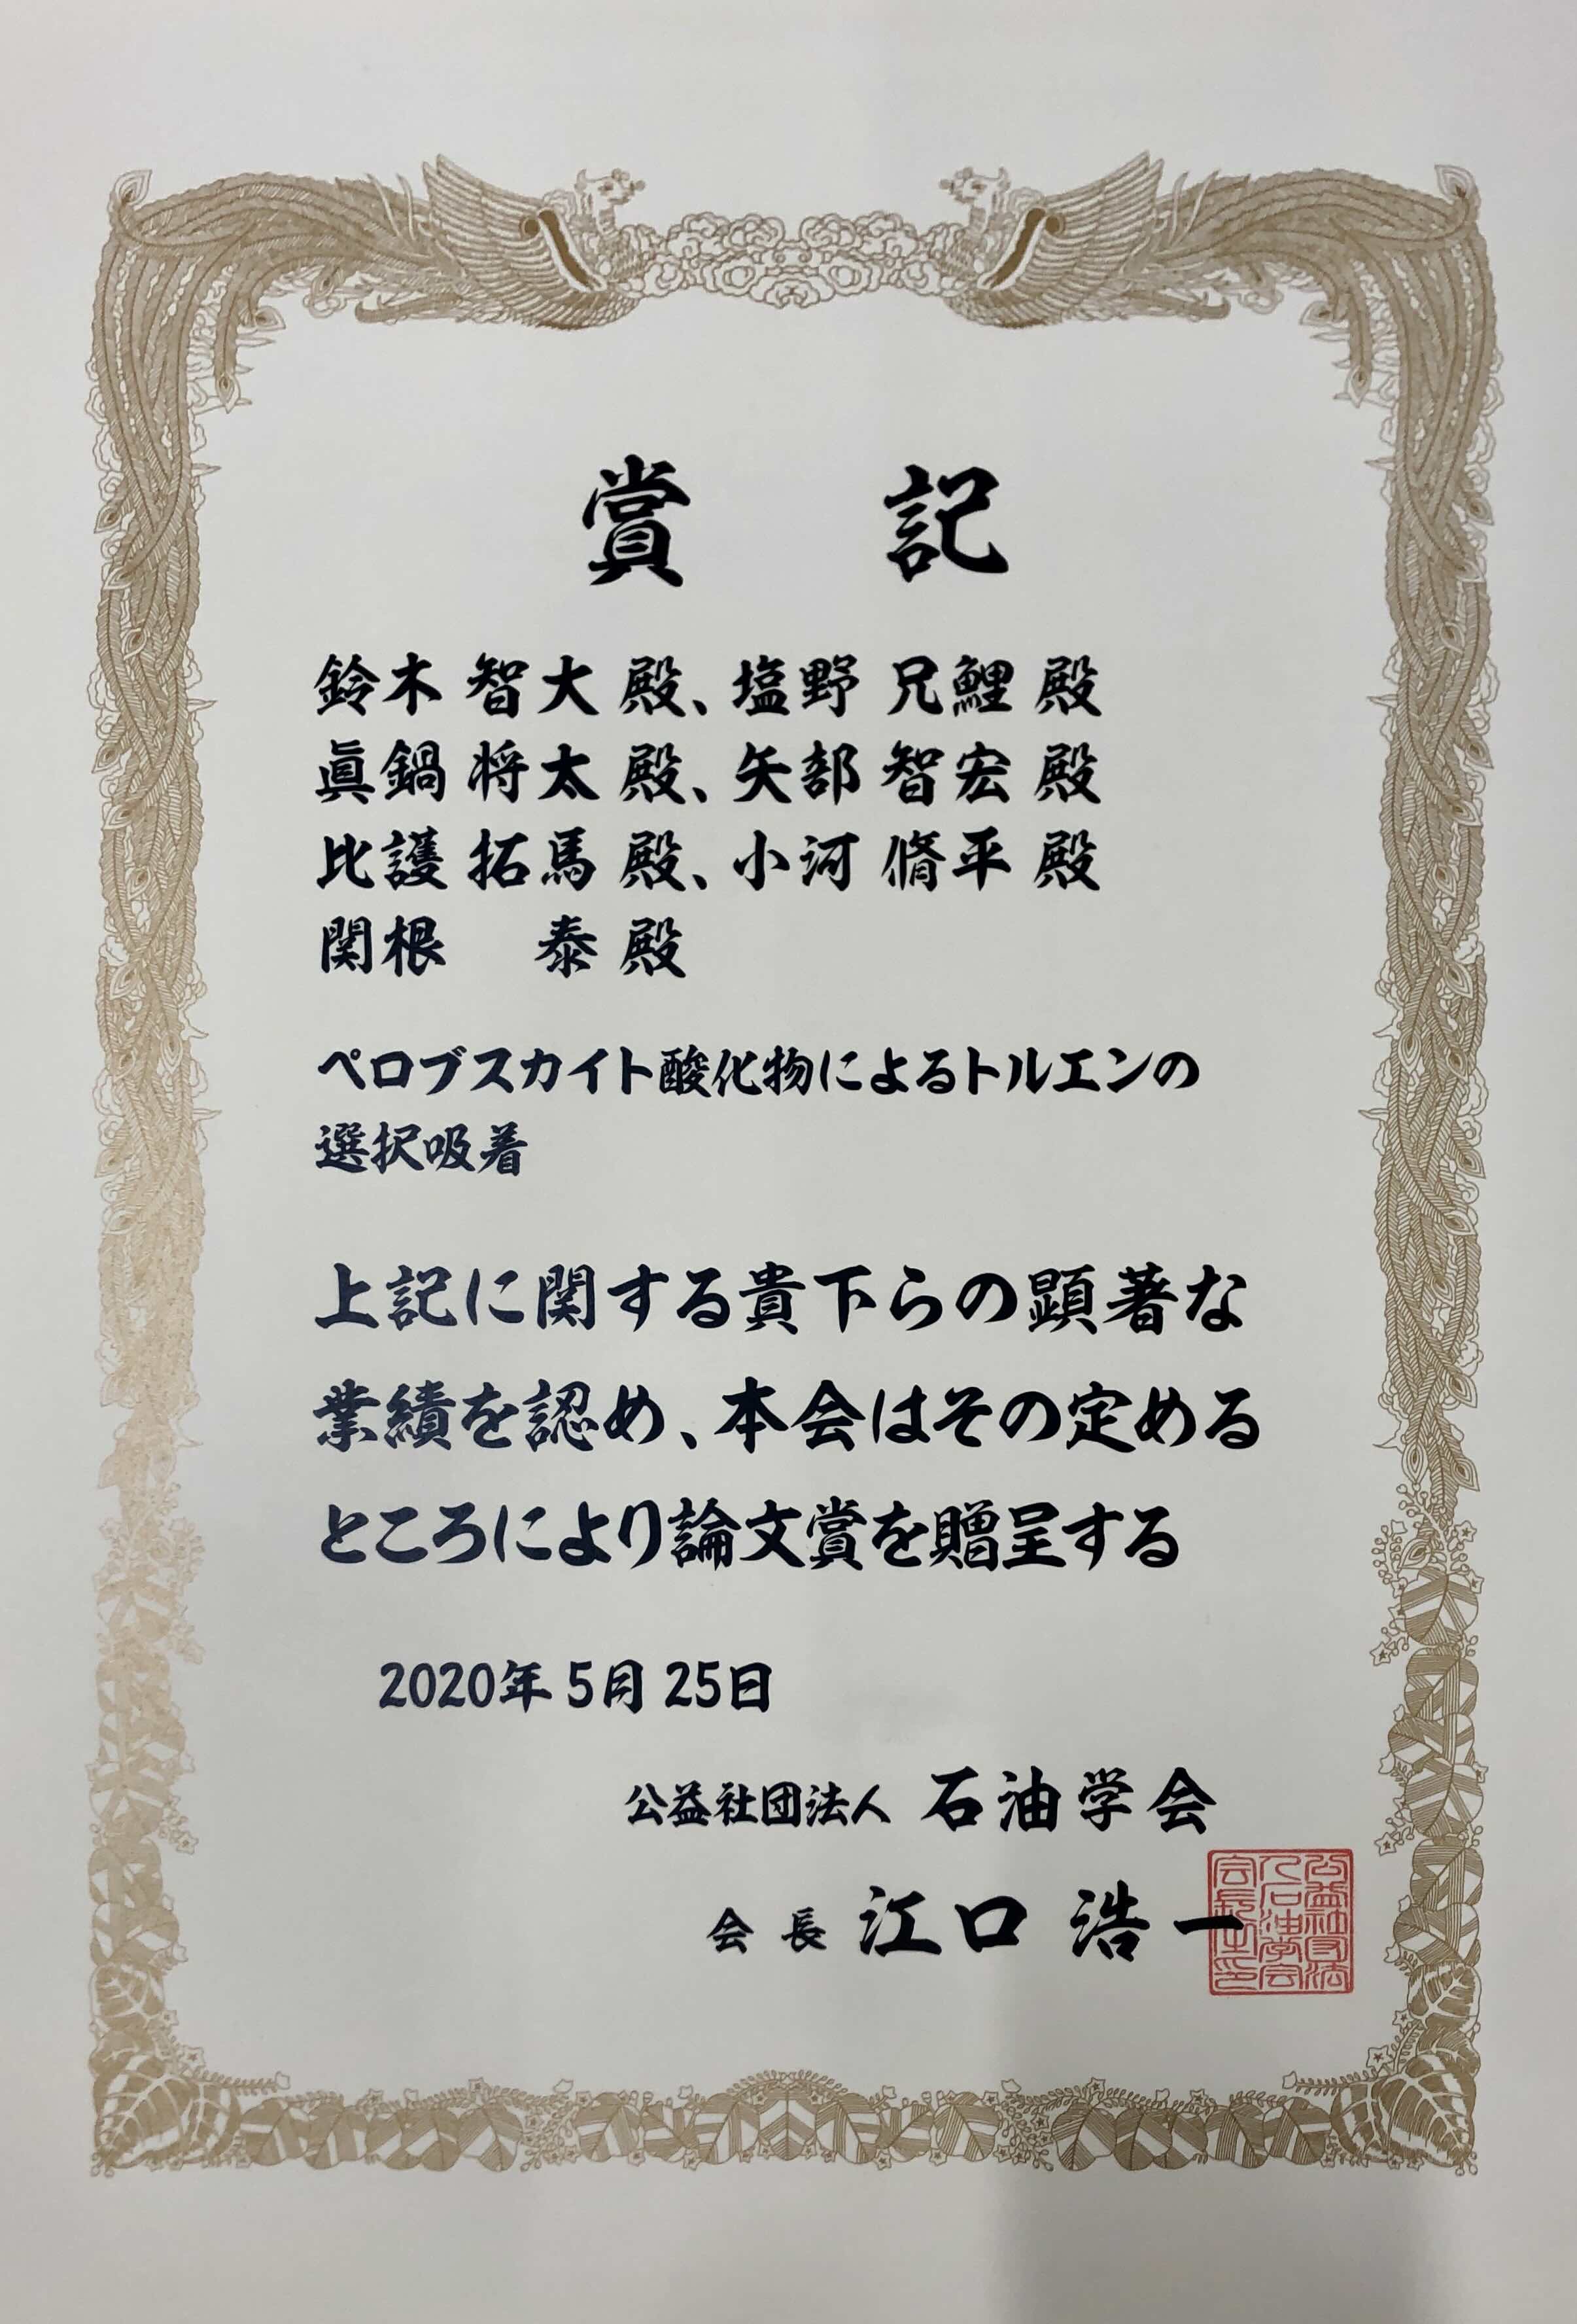 賞 記
鈴木 智大 殿、塩野 兄鯉 殿
眞鍋 将太 殿、矢部 智宏 殿
比護 拓馬 殿、小河 脩平 殿
関根 泰 殿
ペロブスカイト酸化物によるトルエンの
選択吸着
上記に関する貴下らの顕著な
業績を認め、本会はその定める
ところにより論文賞を贈呈する
2020年 5月 25日
公益社団法人 石油学会
会 長 江口 浩一
公益社団法
人石油学会
会長之印